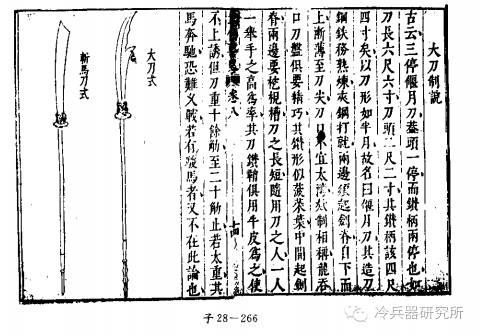 大刀制說
古云三停偃月刀蓋頭一停而鐏柄兩停也如
刀長六尺六寸刀頭二尺二寸其鐏柄該四尺
四寸矣以刀形如半月故名曰偃月刀其造刀
鋼鉄務熟煉夾鋼打就兩邊須起劍脊自下而
上漸薄至刀尖刀口宜太薄制相稱龍吞
口刀盤俱要精巧其鐏形似菠菜葉中間起劍
脊兩邊要挖槽刀之長短隨用刀之人一人
一舉手之高爲率其刀鐏鞘俱用牛皮爲之使
卷八
不上誘但刀重十餘觔至二十觔止若太重其
馬奔馳恐難义戰若有駿馬者又不在此論也
大刀式
斬馬刀式
子28—266
冷兵器研究所